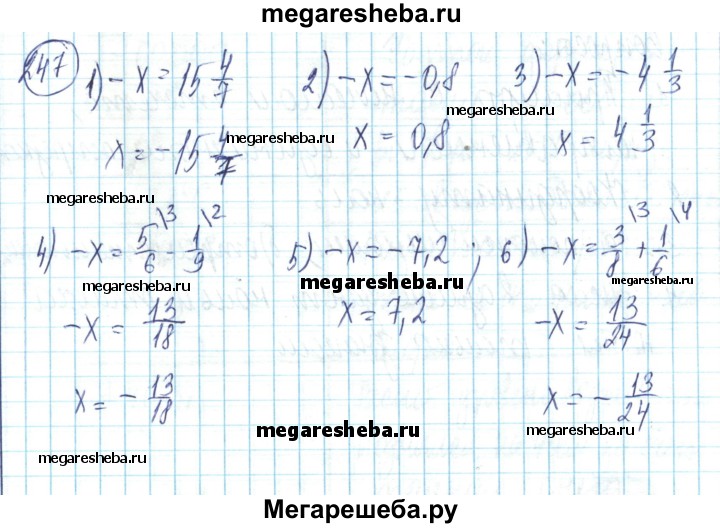 megaresheba.ru
247 1) -x = 15 4/7 2) -x = -0,8 3) -x = -4 1/3
megaresheba.ru
megaresheba.ru
x = -15 4/7 x = 0,8. x = 4 1/3
megaresheba.ru
megaresheba.ru
megaresheba.ru
4) -x = 5/6 \3 - 1/9 \2 5) -x = -7,2 ; 6) -x = 3/8 \3 + 1/6 \4
megaresheba.ru
megaresheba.ru
megaresheba.ru
-x = 13/18 x = 7,2 -x = 13/24
x = - 13/18 x = - 13/24
megaresheba.ru
megaresheba.ru
megaresheba.ru
Мегарешеба.ру